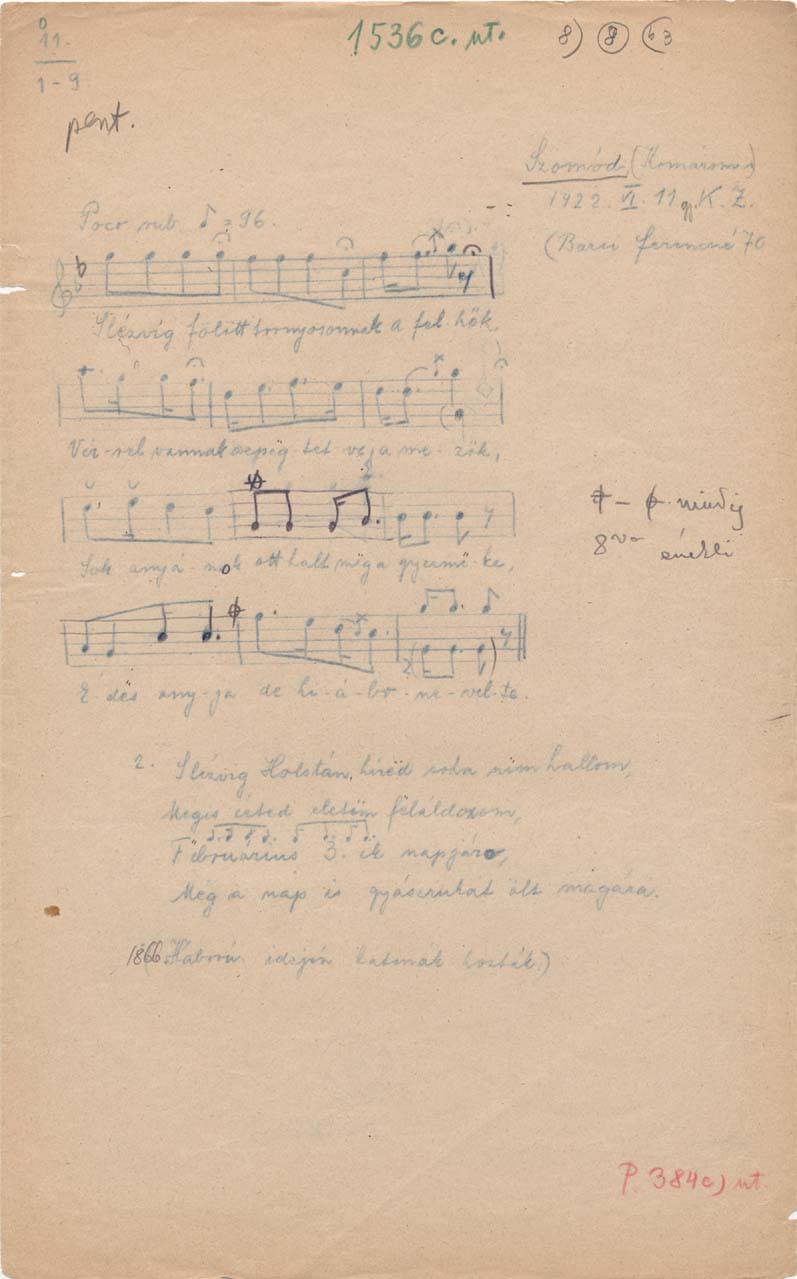 11.
1-9
1536 c. nt.
8) 8 b3
pent.
Szomód (Komárom)
1922. VI. 11 gy. K. Z.
(Barsi Ferencné 70
Poco rub. ♪ = 96.
Slézvig fölött tornyosonnak a fel-hők
Vér-rel vannak a me-zők,
Sok anyá-nok ott halt mëg a gyermë-ke,
É-dës any-ja de hi-á-bo ne-vel-te.
⌽ - ⌽ mindig
8va énekli
2. Slézvig Holstán, hirëd soha nëm hallom,
Mégis érted életëm föláldozom,
Februárius 3. ik napjáro,
Még a nap is gyászruhát ölt magára.
1866 (Háború idején katonák hozták.)
P. 384c) nt.